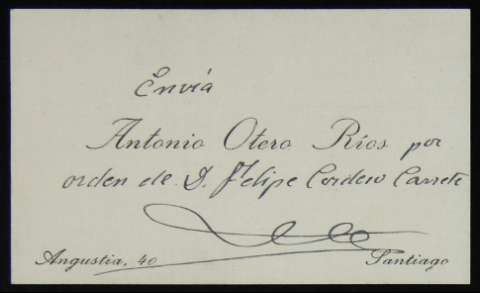 Envía
Antonio Otero Ríos por
orden de D. Felipe Cordero Carrete
Angustia, 40 Santiago